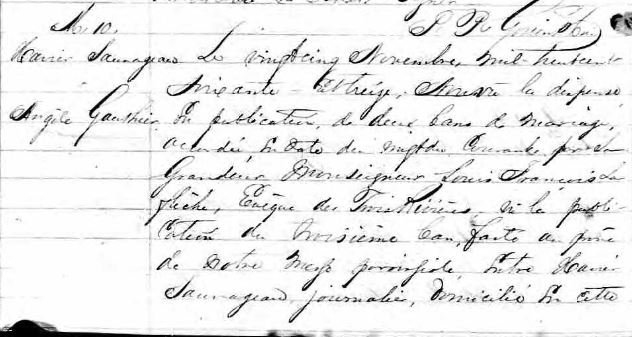 M. 10.
Xavier Sauvageau Le vingtcinq Novembre mil-huitcent
soixante-Et treize, Nous vu la dispense
Angèle Gauthier En publication, de deux bans de mariage,
accordé En Date du Courant, par Sa
Grandeur Monseigneur Louis François La
flêche, Evêque des Trois Rivières, vu la publi-
cation du troisième ban, faite au prône
de Notre Messe paroissiale, Entre Xavier
Sauvageau, journalier, domicilié En cette